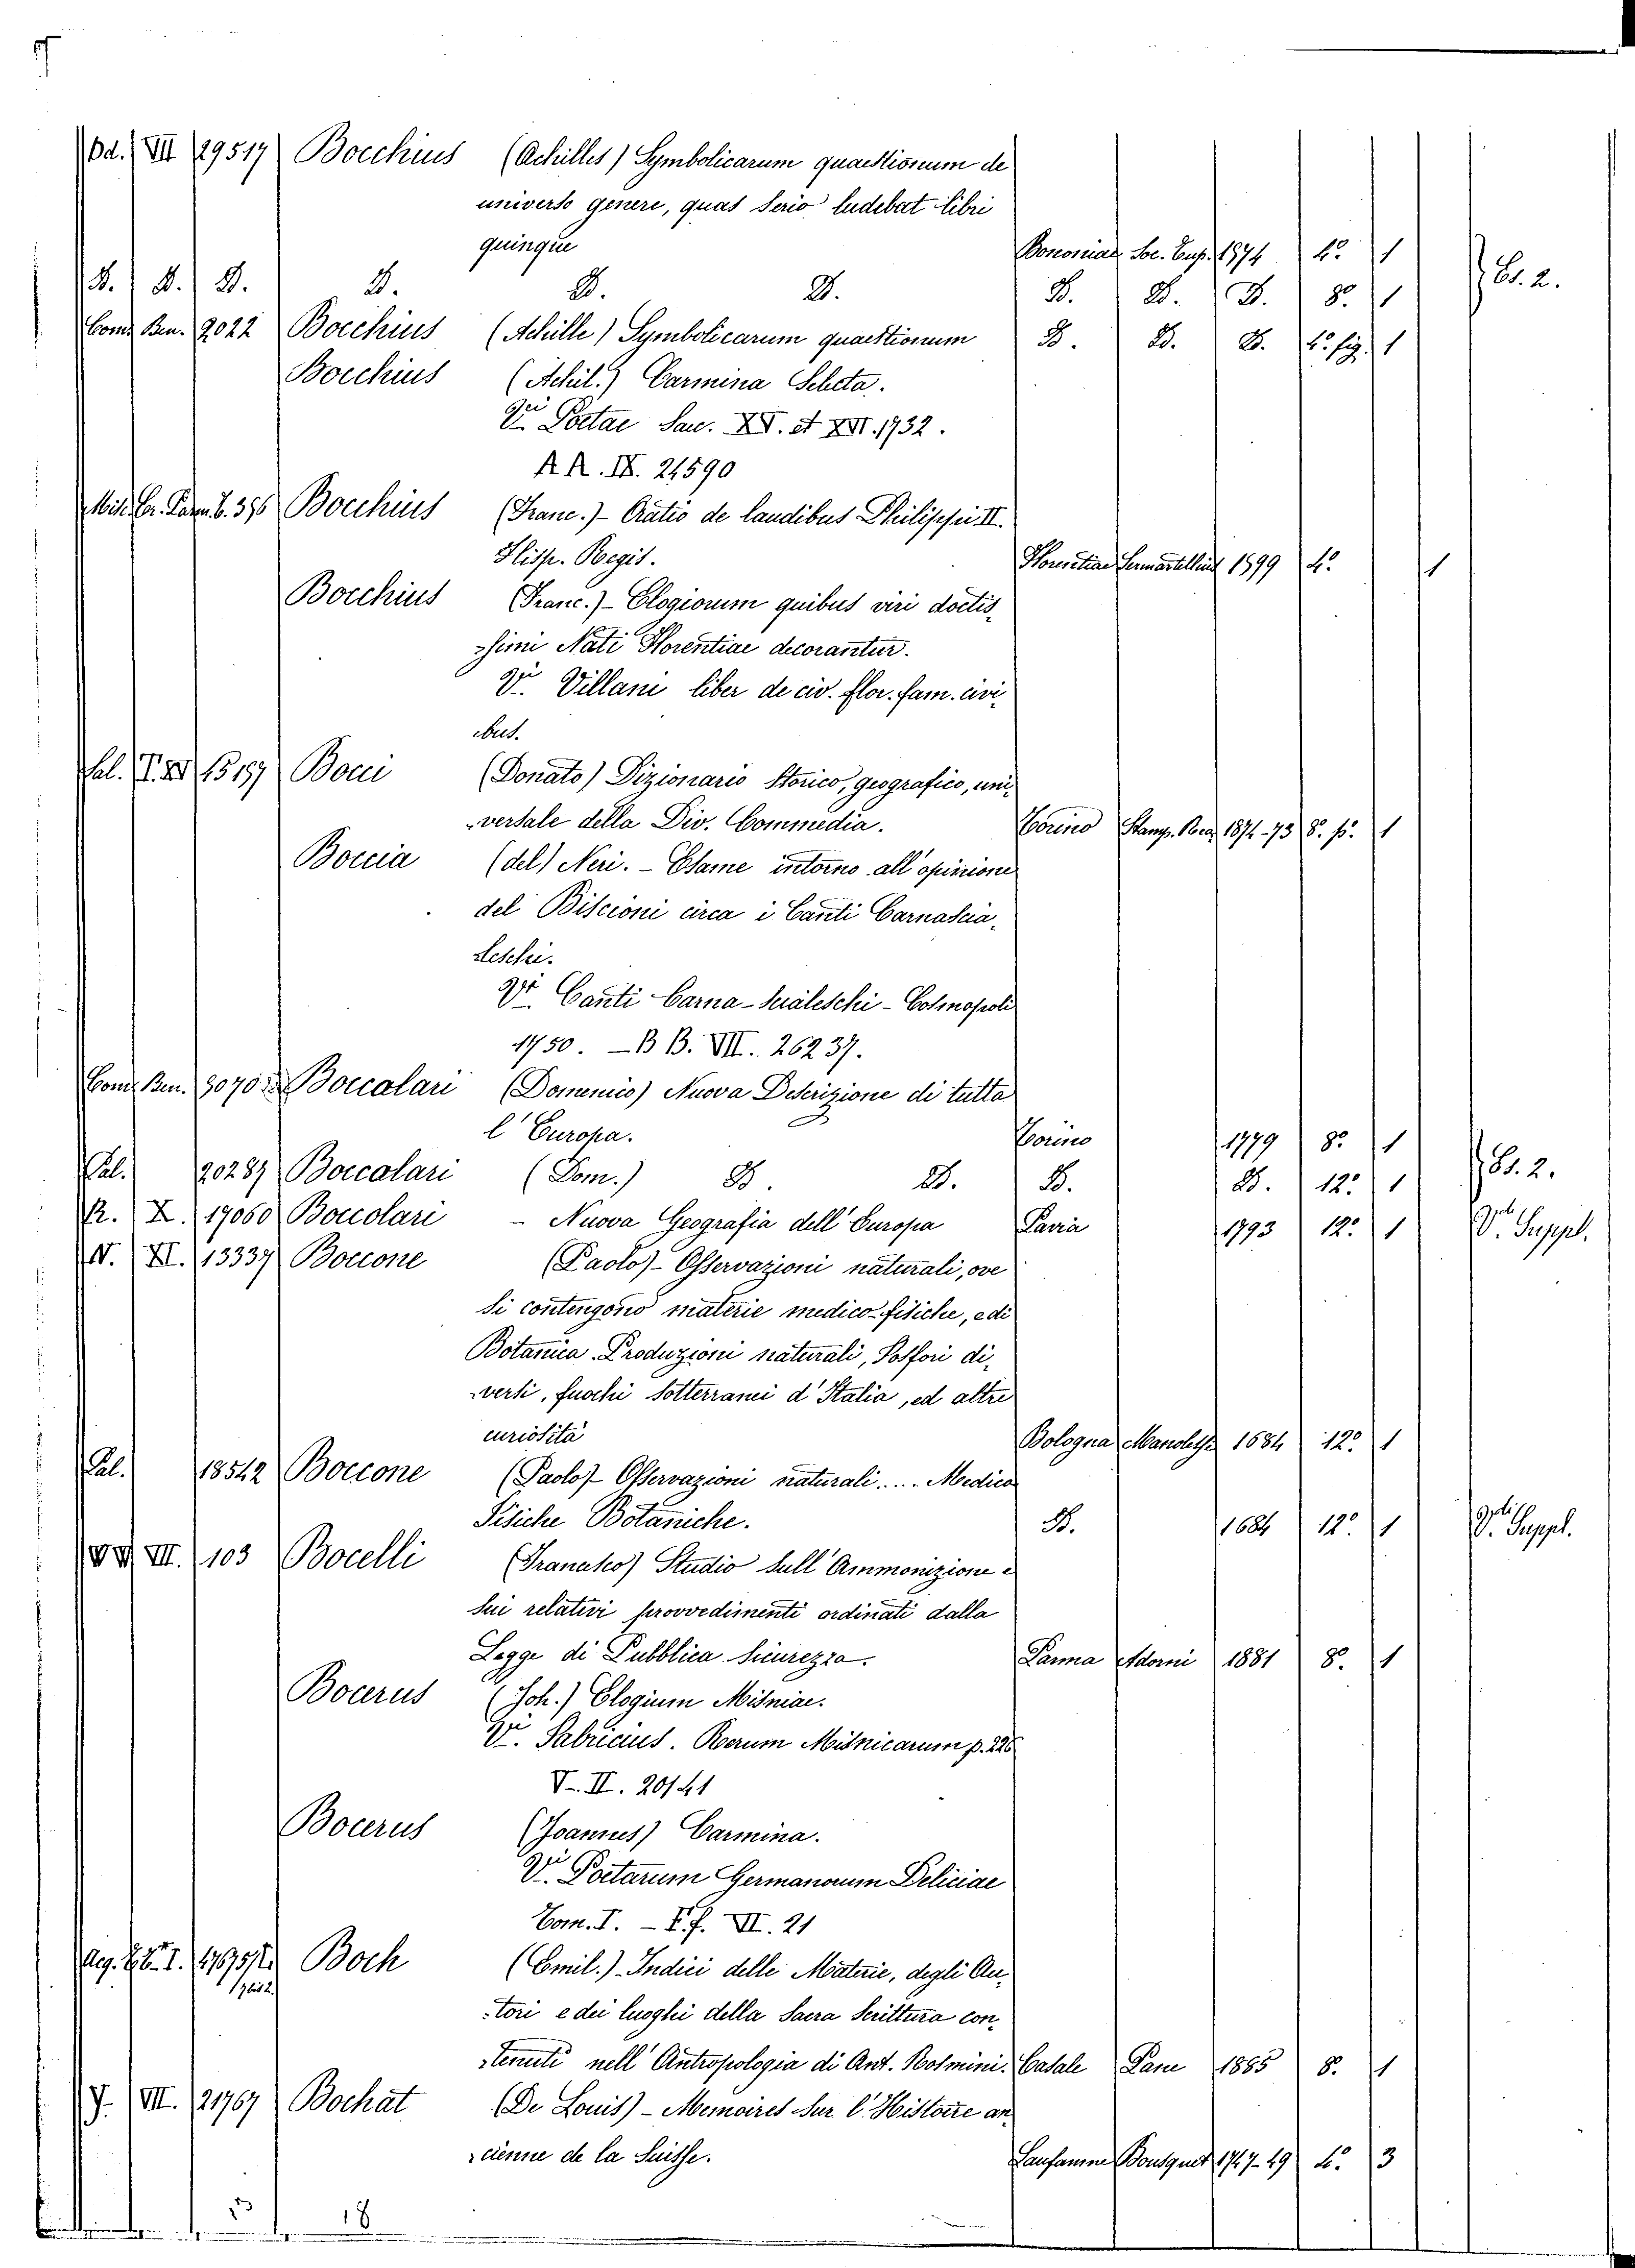 Dd. VII 29517 Bocchius (Achilles) Symbolicarum quaestionum de
universo genere, quas serio ludebat libri
quinque Bononiae Soc. Typ. 1574 4.° 1
D. D. D. D. D. D. D. D. D. 8.° 1 Es. 2.
Com. Ben. 2022 Bocchius (Achille) Symbolicarum quaestionum D. D. D. 4.° fig. 1
Bocchius (Achil.) Carmina Selecta.
Vi Poetae Saec. XV. et XVI. 1732.
A A. IX. 24590
Misc. Er. Parm. 8. 396 Bocchius (Franc.) - Oratio de laudibus Philippi II.
Hisp. Regis. Florentiae Sermartellius 1599 4.° 1
Bocchius (Franc.) - Elogiorum quibus viri doctis-
-simi Nati Florentiae decorantur.
Vi Villani liber de civ. flor. fam. civi-
bus.
Sal. T. XV 15157 Bocci (Donato) Dizionario Storico, geografico, uni-
-versale della Div. Commedia. Torino Stamp. Rea 1872-73 8.° p.° 1
Boccia (del) Neri. - Esame intorno all'opinione
del Biscioni circa i Canti Carnascia-
-leschi.
Vi Canti Carna-scialeschi - Cosmopoli
1750. - B B. VII. 26237.
Com. Ben. 3070 Boccalari (Domenico) Nuova Descrizione di tutta
l'Europa. Torino 1779 8.° 1
Pal. 20287 Boccalari (Dom.) D. D. D. D. 12.° 1 Es. 2.
R. X. 17060 Boccolari - Nuova Geografia dell'Europa Pavia 1793 12.° 1 Vi Suppl.
N. XI. 13337 Boccone (Paolo) - Osservazioni naturali, ove
si contengono materie medico-fisiche, e di
Botanica. Produzioni naturali, Fosfori di-
-versi, fuochi sotterranei d'Italia, ed altre
curiosità Bologna Manolessi 1684 12.° 1
Pal. 18542 Boccone (Paolo) - Osservazioni naturali.... Medico
Fisiche Botaniche. D. 1684 12.° 1 Vi Suppl.
VV VII. 103 Bocelli (Francesco) Studio sull'Ammonizione e
sui relativi provvedimenti ordinati dalla
Legge di Pubblica Sicurezza. Parma Adorni 1881 8.° 1
Bocerus (Joh.) Elogium Misniae.
Vi Fabricius. Rerum Misnicarum p. 225
V. II. 20141
Bocerus (Joannes) Carmina.
Vi Poetarum Germanorum Deliciae
Tom. I. - F.f. VII. 21
Boch (Emil.) - Indici delle Materie, degli Au-
-tori e dei luoghi della Sacra Scrittura con-
-tenuti nell'Antropologia di Ant. Rosmini. Casale Pane 1885 8.° 1
J. VII. 21767 Bochat (De Louis) - Memoires sur l'Histoire an-
-cienne de la Suisse. Lausanne Bousquet 1747-49 4.° 3
18